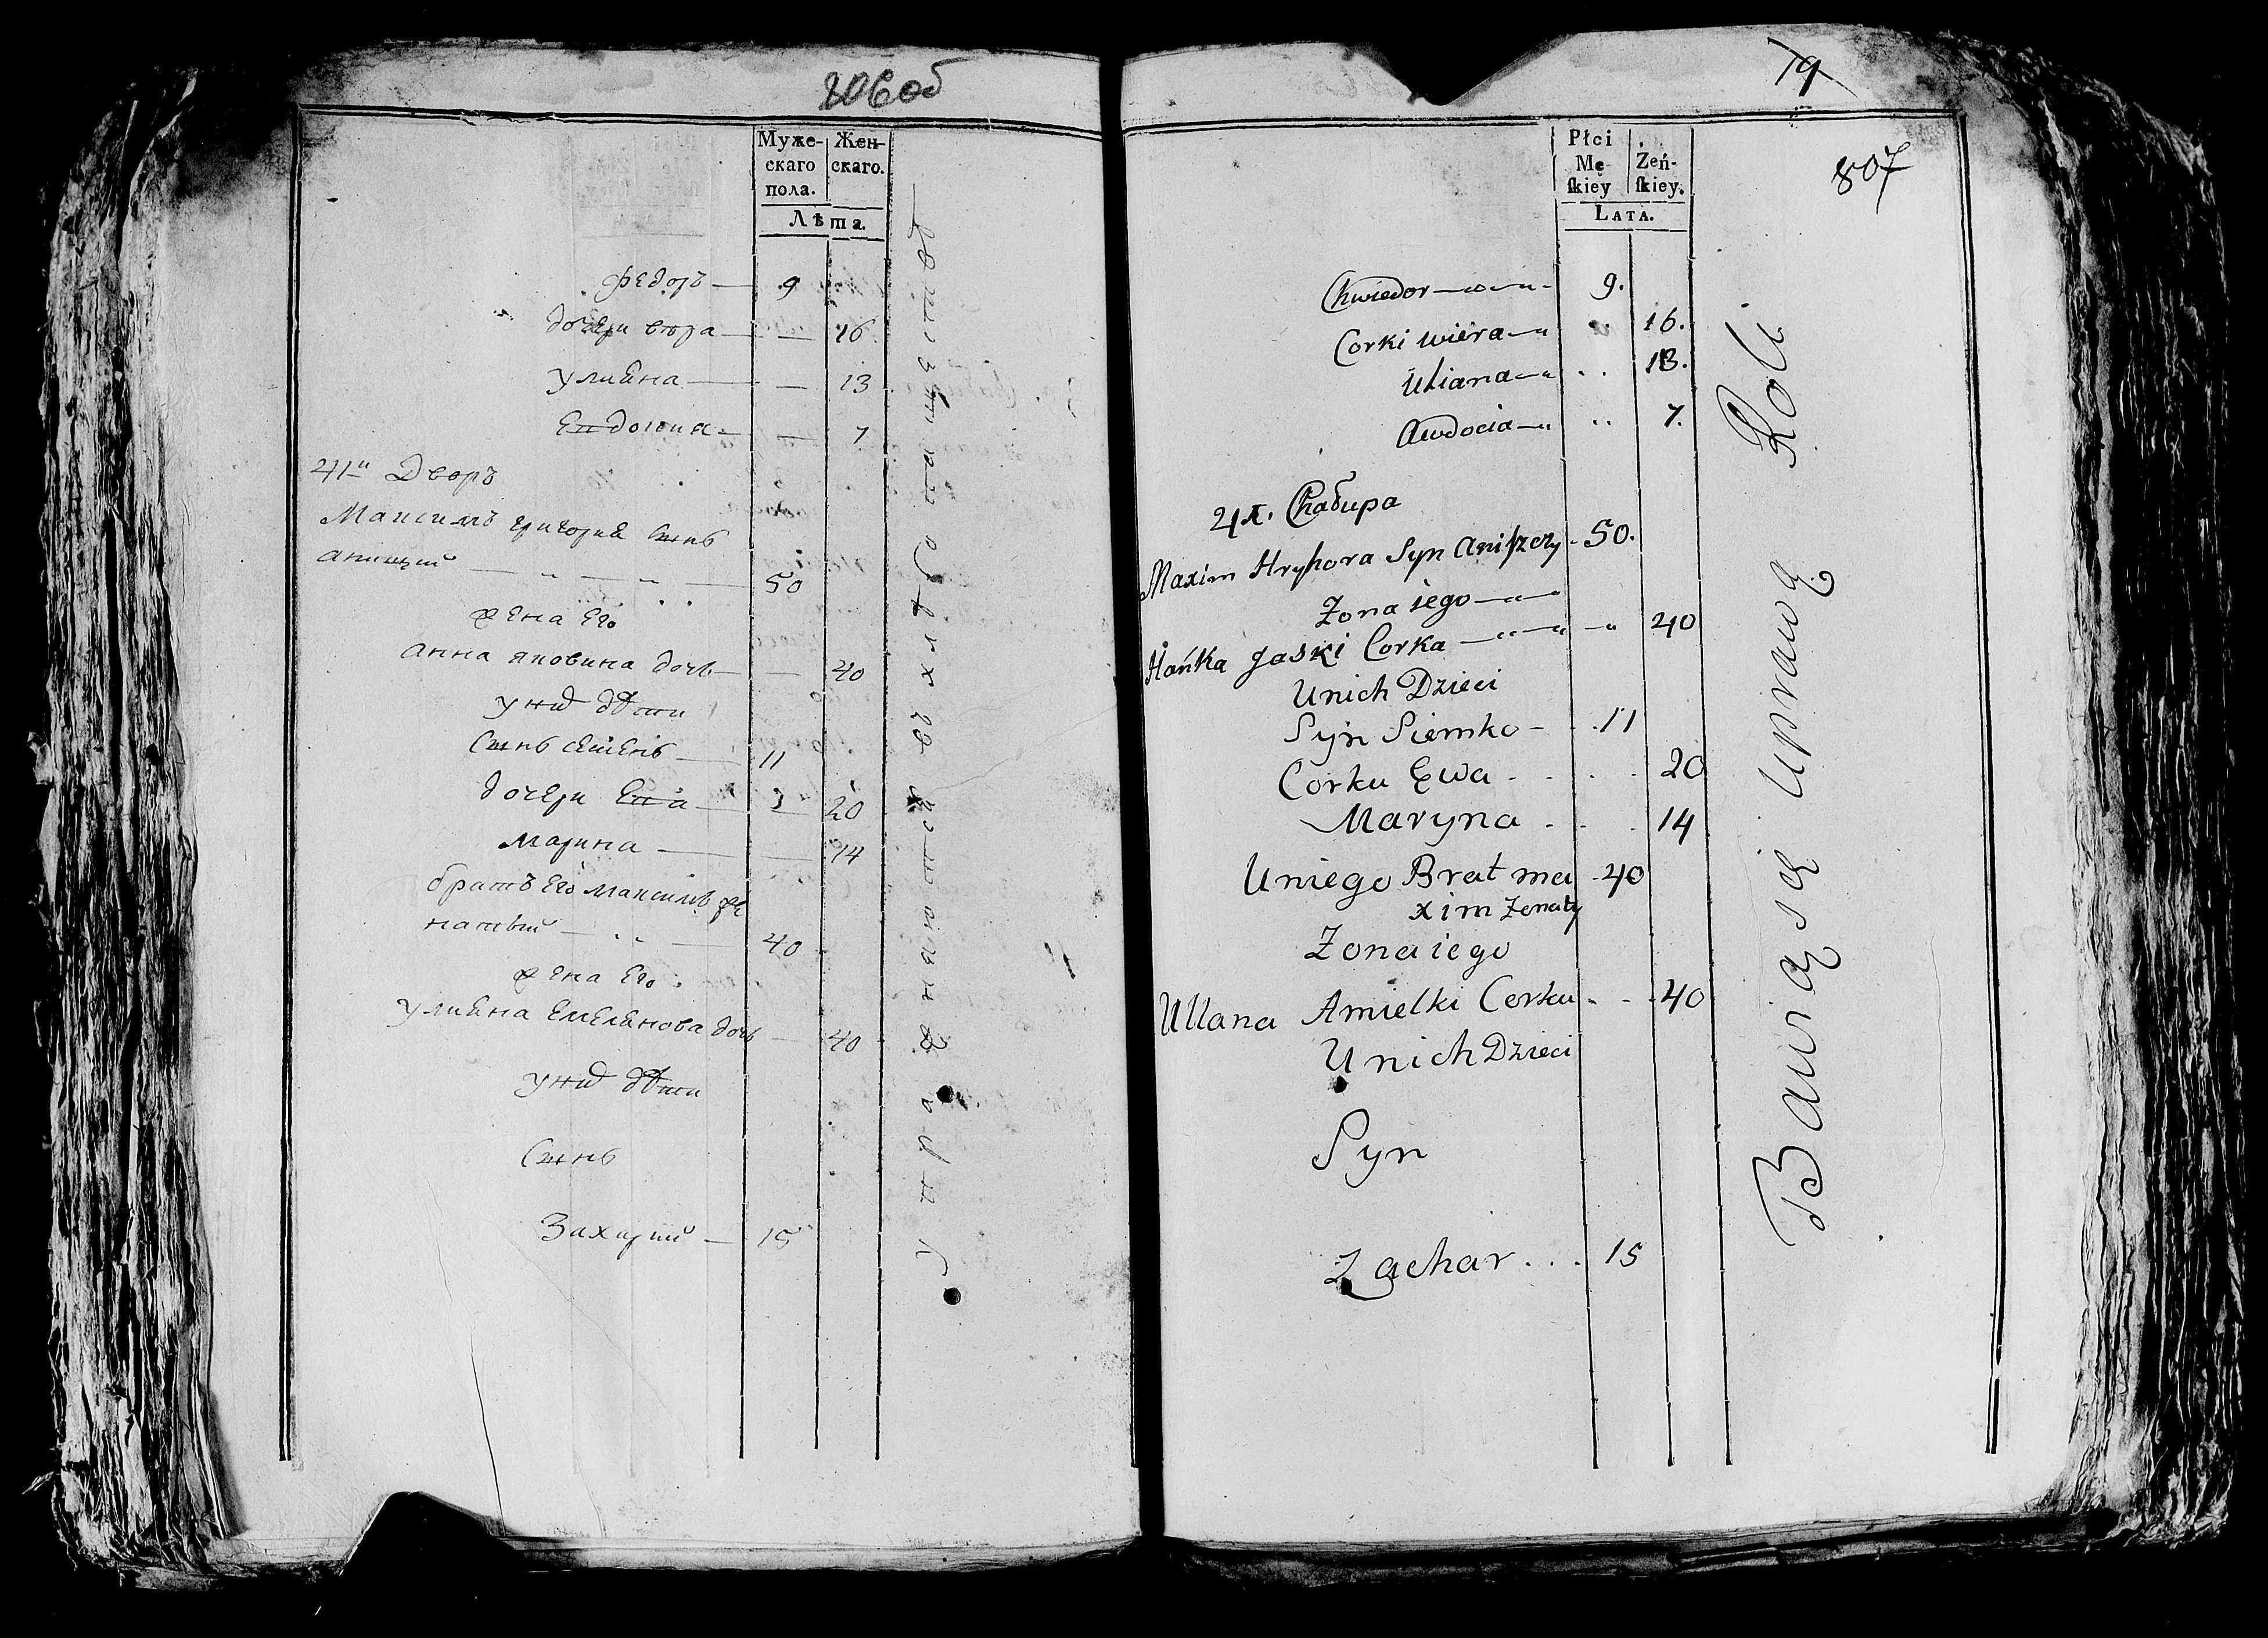 806об
Муже-
скаго
пола.
Жен-
скаго.
Лѣта.
Федоръ — 9
дочери вѣра — — 16
улиана — — 13
Евдокиа — — 7
41й Дворъ
Максимъ григориев Сынъ
50
жена Его
анна яковина дочь — — 40
у них дѣти
Сынъ семенъ — 11
дочери Ева — 20
марина — — 14
братъ Его максимъ же
натый — 40
жена Его
улиана Емелянова дочь — 40
у них дѣти
Сынъ
Захарий — 15
19
807
Płci
Mę
skiey
Żeń-
skiey.
LATA.
Chwiedor 9.
Corki wiera 16.
Uliana 13.
Awdocia 7.
41. Chaбupa
Maxim Hryhora Syn Aniszczy 50.
Żona iego
Hańka Jaski Corka 40
Unich Dzieci
Syn Siemko - 11
Corka Ewa 20
Maryna 14
Uniego Brat ma 40
xim żenaty
Żona iego
Ullana Amielki Corka 40
Unich Dzieci
Syn
Zachar ... 15
Bawią się uprawą Roli